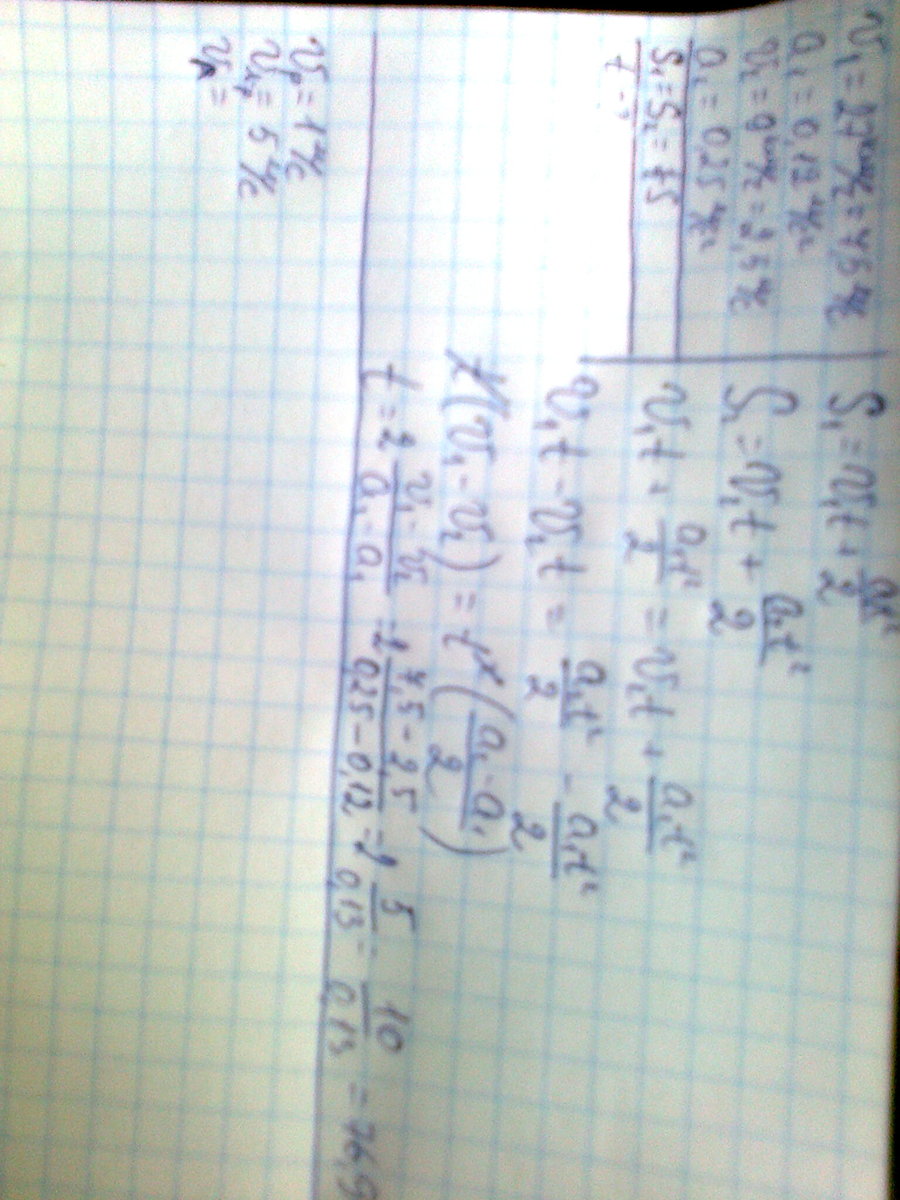 v₁ = 27 км/ч = 7,5 м/с
a₁ = 0,12 м/с²
v₂ = 9 км/ч = 2,5 м/с
a₂ = 0,25 м/с²
S₁ = S₂ = 75
t - ?
S₁ = v₁t + at²/2
S₂ = v₂t + a₂t²/2
v₁t + a₁t²/2 = v₂t + a₂t²/2
v₁t - v₂t = a₂t²/2 - a₁t²/2
t(v₁ - v₂) = t²((a₂ - a₁)/2)
t = 2 (v₁ - v₂)/(a₂ - a₁) = 2 (7,5 - 2,5)/(0,25 - 0,12) = 2 5/0,13 = 10/0,13 = 76,9
vₚ = 1 м/с
= 5 м/с
v =